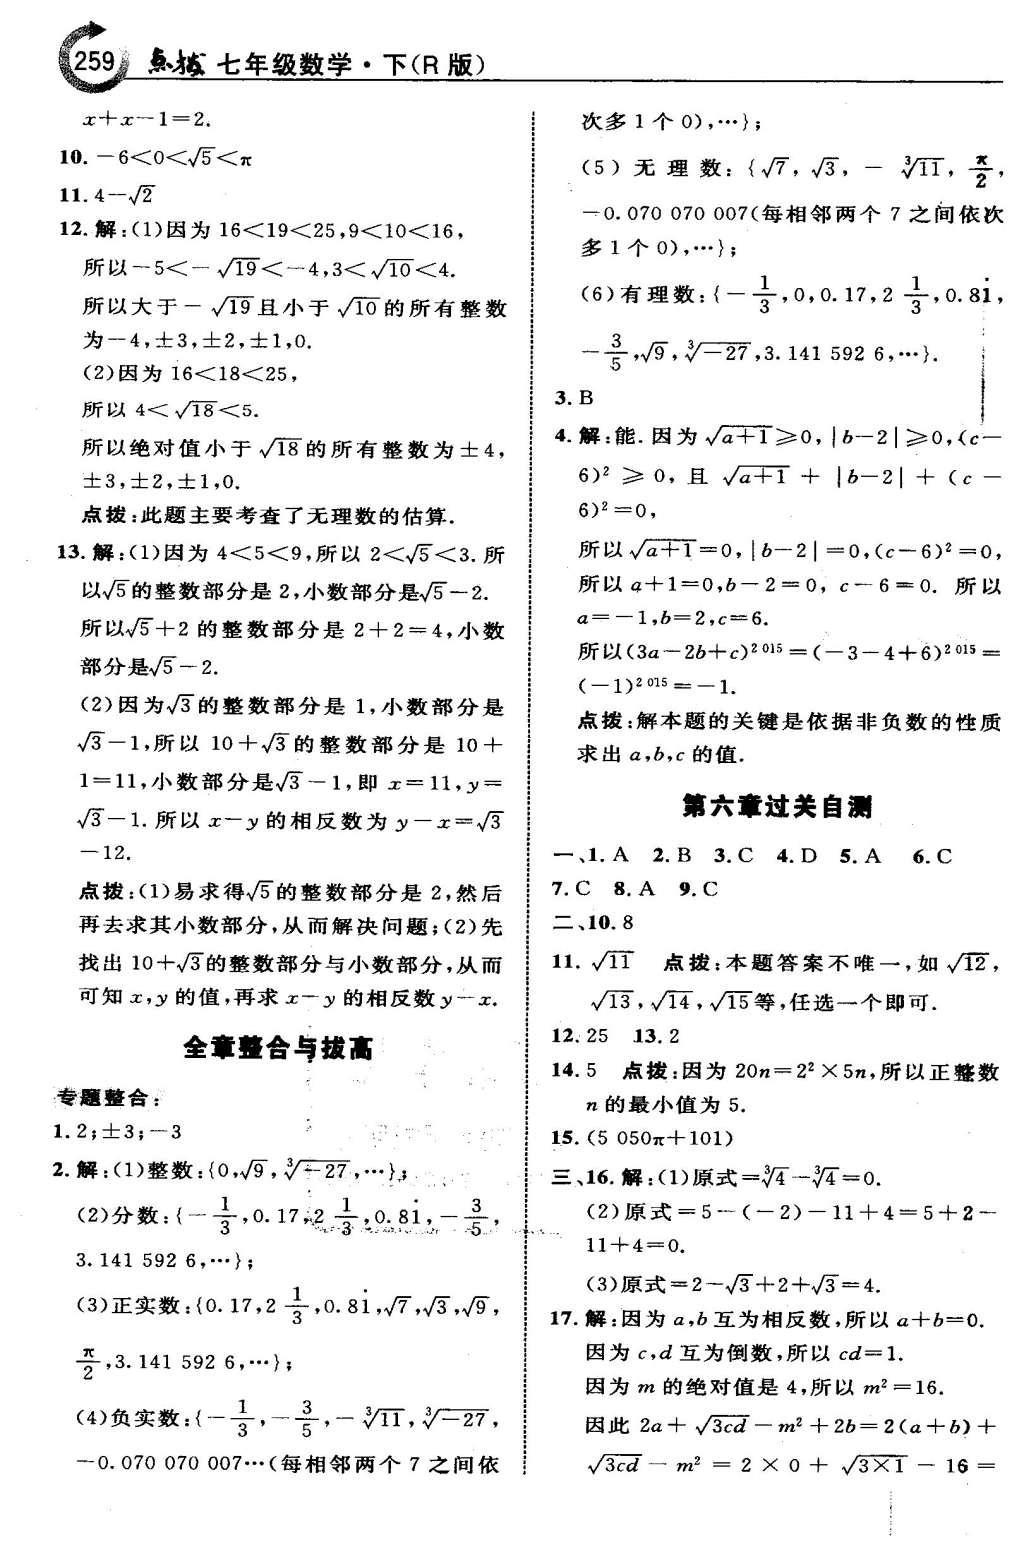 259 点拨 七年级数学·下(R版)
x+x-1=2.
10. -6<0<√5<π
11. 4-√2
12. 解:(1)因为 16<19<25,9<10<16,
所以-5<-√19<-4,3<√10<4.
所以大于-√19且小于√10的所有整数
为-4,±3,±2,±1,0.
(2)因为 16<18<25,
所以 4<√18<5.
所以绝对值小于√18的所有整数为±4,
±3,±2,±1,0.
点拨:此题主要考查了无理数的估算.
13. 解:(1)因为 4<5<9,所以 2<√5<3.所
以√5的整数部分是 2,小数部分是√5-2.
所以√5+2 的整数部分是 2+2=4,小数
部分是√5-2.
(2)因为√3的整数部分是 1,小数部分是
√3-1,所以 10+√3的整数部分是 10+
1=11,小数部分是√3-1,即 x=11,y=
√3-1. 所以 x-y 的相反数为 y-x=√3
-12.
点拨:(1)易求得√5的整数部分是 2,然后
再去求其小数部分,从而解决问题;(2)先
找出 10+√3的整数部分与小数部分,从而
可知 x,y 的值,再求 x-y 的相反数 y-x.
全章整合与拔高
专题整合:
1. 2;±3;-3
2. 解:(1)整数:{0,√9,∛-27,…};
(2)分数:{-1/3,0.17,2 1/3,0.81̇,-3/5,
3.141 592 6,…};
(3)正实数:{0.17,2 1/3,0.81̇,√7,√3,√9,
π/2,3.141 592 6,…};
(4)负实数:{-1/3,-3/5,-∛11,∛-27,
-0.070 070 007…(每相邻两个 7 之间依
次多 1 个 0),…};
(5)无理数:{√7,√3,-∛11,π/2,
-0.070 070 007(每相邻两个 7 之间依次
多 1 个 0),…};
(6)有理数:{-1/3,0,0.17,2 1/3,0.81̇,
-3/5,√9,∛-27,3.141 592 6,…}.
3. B
4. 解:能. 因为√a+1≥0,|b-2|≥0,(c-
6)²≥0,且√a+1+|b-2|+(c-
6)²=0,
所以√a+1=0,|b-2|=0,(c-6)²=0,
所以 a+1=0,b-2=0,c-6=0. 所以
a=-1,b=2,c=6.
所以(3a-2b+c)²⁰¹⁵=(-3-4+6)²⁰¹⁵=
(-1)²⁰¹⁵=-1.
点拨:解本题的关键是依据非负数的性质
求出 a,b,c 的值.
第六章过关自测
一、1. A 2. B 3. C 4. D 5. A 6. C
7. C 8. A 9. C
二、10. 8
11. √11 点拨:本题答案不唯一,如√12,
√13,√14,√15等,任选一个即可.
12. 25 13. 2
14. 5 点拨:因为 20n=2²×5n,所以正整数
n 的最小值为 5.
15. (5 050π+101)
三、16. 解:(1)原式=∛4-∛4=0.
(2)原式=5-(-2)-11+4=5+2-
11+4=0.
(3)原式=2-√3+2+√3=4.
17. 解:因为 a,b 互为相反数,所以 a+b=0.
因为 c,d 互为倒数,所以 cd=1.
因为 m 的绝对值是 4,所以 m²=16.
因此 2a+√3cd-m²+2b=2(a+b)+
√3cd-m²=2×0+√3×1-16=